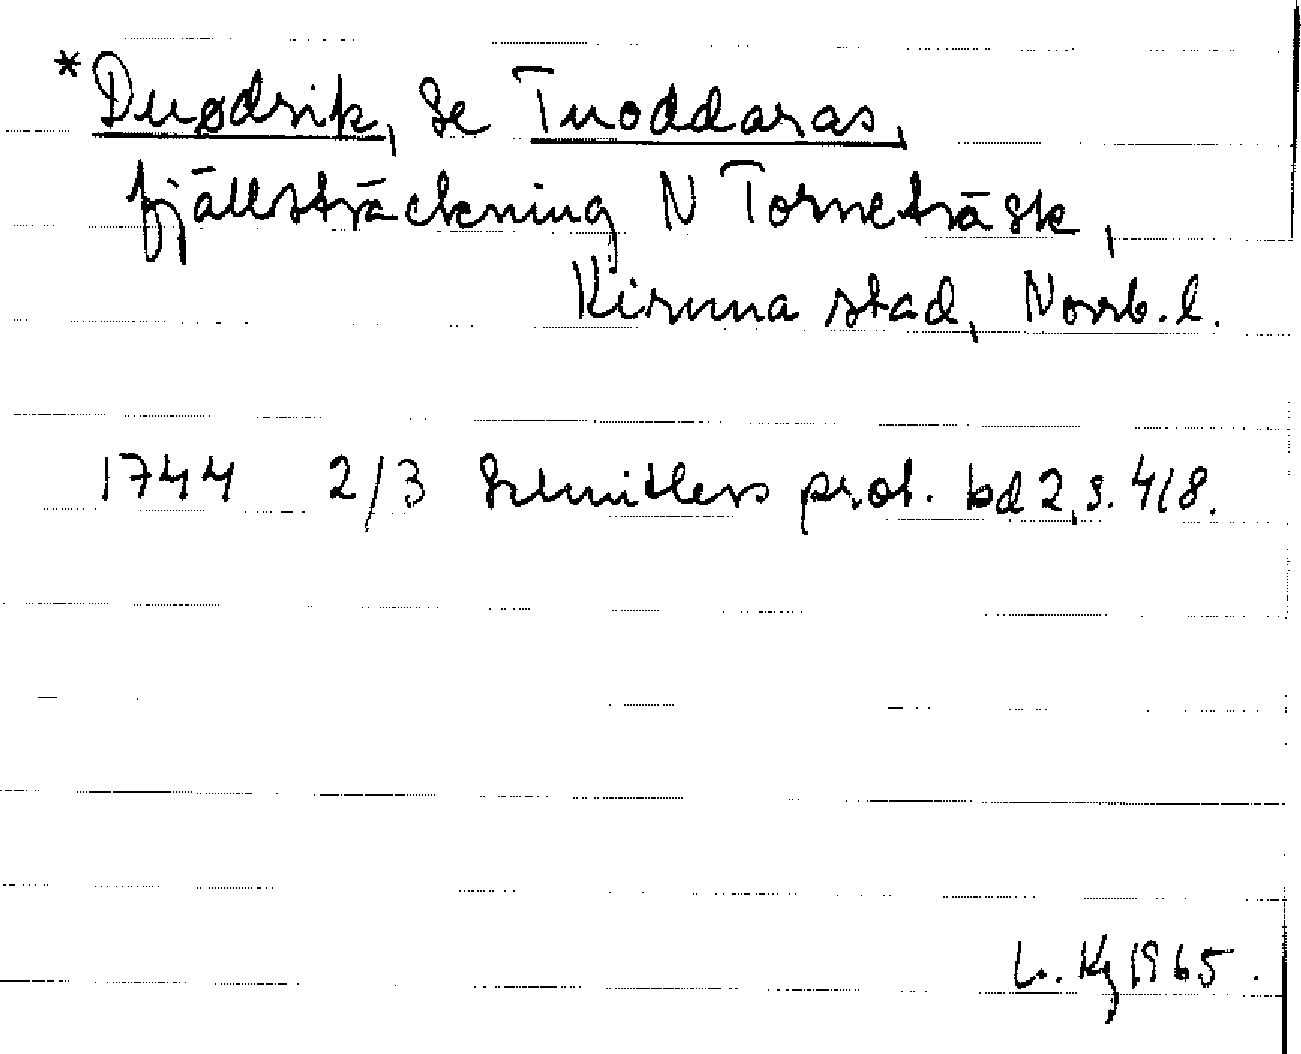 *Duødrik, Se Tuoddaras,
fjällsträckning N Torneträsk,
Kiruna stad, Norrb. l.
1744 2/3 Schnitlers prot. bd 2, s. 418.
L. Kg 1965.